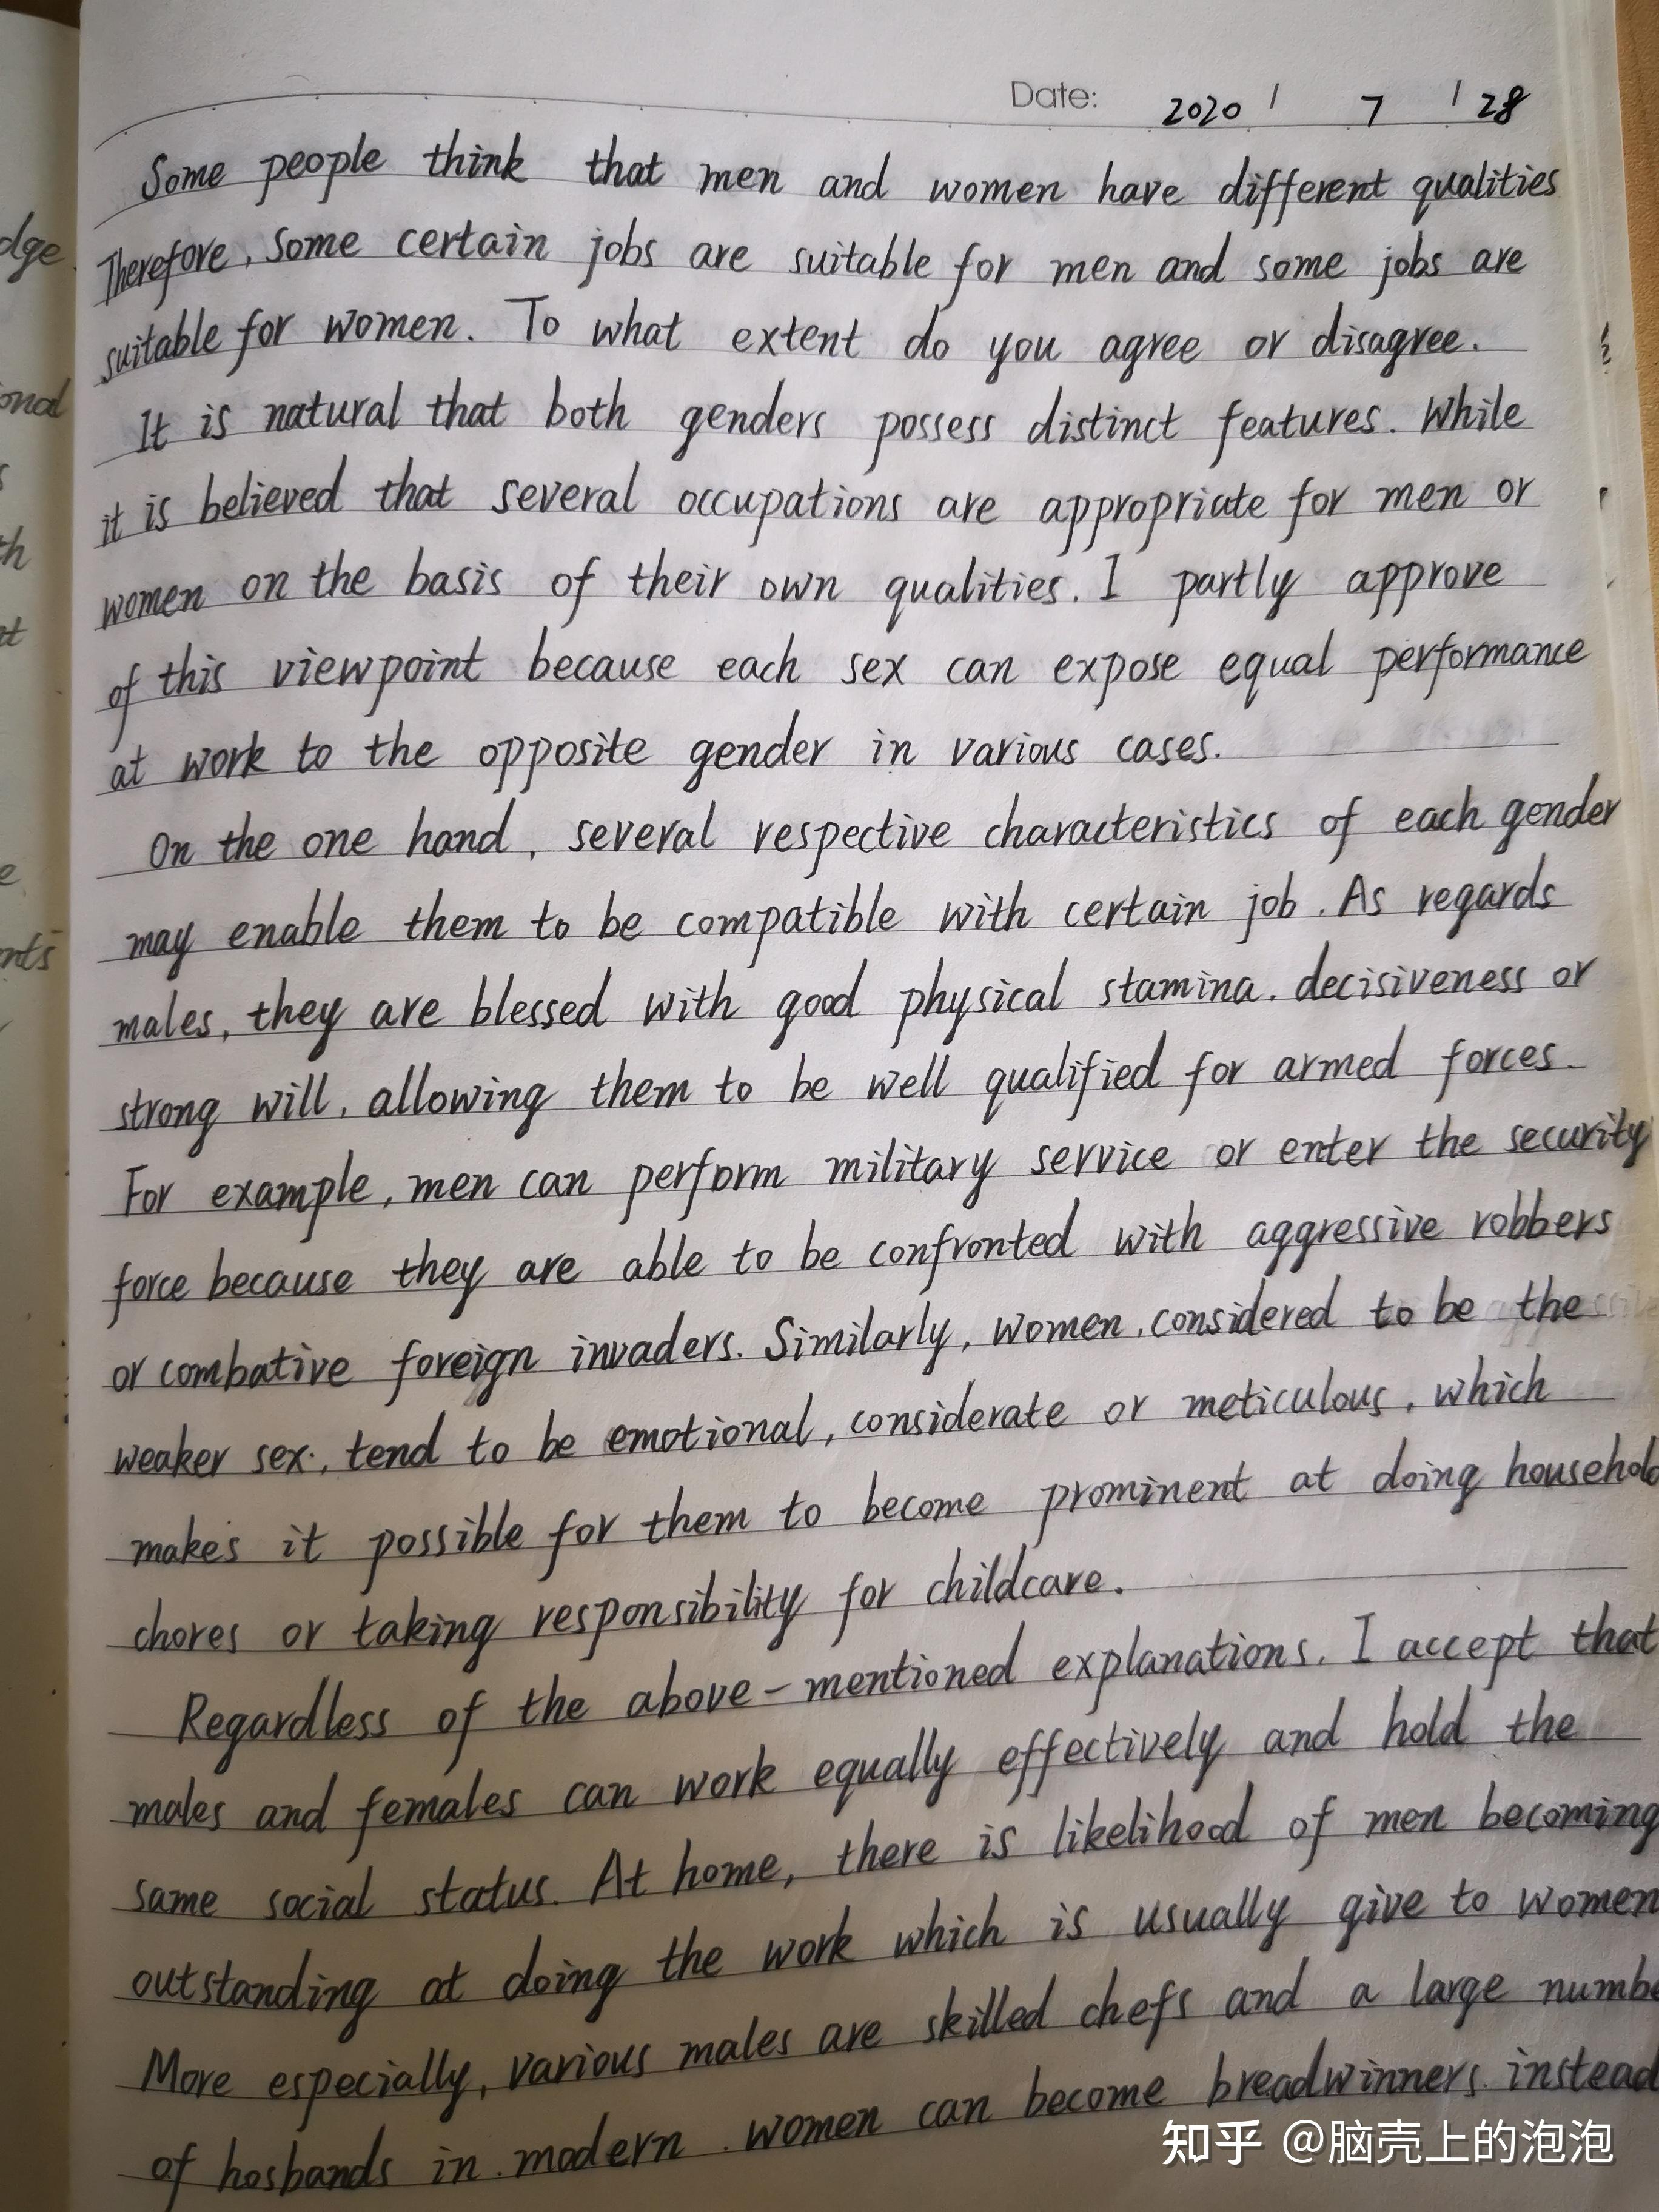 Date: 2020 / 7 / 28
Some people think that men and women have different qualities
Therefore, some certain jobs are suitable for men and some jobs are
suitable for women. To what extent do you agree or disagree.
It is natural that both genders possess distinct features. While
it is believed that several occupations are appropriate for men or
women on the basis of their own qualities. I partly approve
of this viewpoint because each sex can expose equal performance
at work to the opposite gender in various cases.
On the one hand, several respective characteristics of each gender
may enable them to be compatible with certain job. As regards
males, they are blessed with good physical stamina. decisiveness or
strong will, allowing them to be well qualified for armed forces.
For example, men can perform military service or enter the security
force because they are able to be confronted with aggressive robbers
or combative foreign invaders. Similarly, women, considered to be the
weaker sex, tend to be emotional, considerate or meticulous, which
makes it possible for them to become prominent at doing household
chores or taking responsibility for childcare.
Regardless of the above-mentioned explanations, I accept that
males and females can work equally effectively and hold the
same social status. At home, there is likelihood of men becoming
outstanding at doing the work which is usually give to women
More especially, various males are skilled chefs and a large numbe
of hosbands in modern women can become breadwinners instead
dge
onal
s
th
at
e
nts
知乎 @脑壳上的泡泡